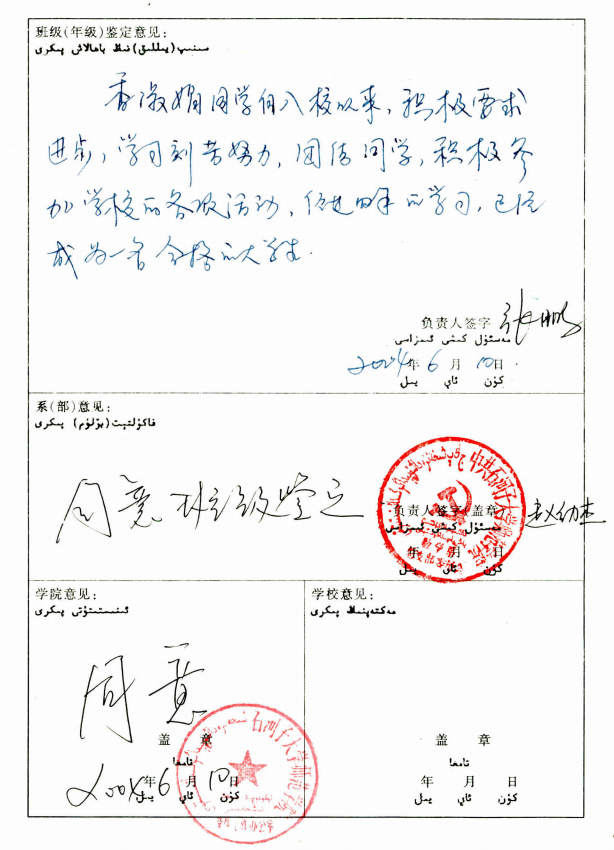 班级(年级)鉴定意见:
سىنىپ(يىللىق)نىڭ باھالاش پىكرى
同学自入校以来,积极要求
进步,学习刻苦努力,团结同学,积极参
加学校的各项活动,的学习,已经
成为一名合格的大学生.
负责人签字 张鹏
مەسئۇل كىشى ئىمزاسى
2004年6月10日
كۈن ئاي يىل
系(部)意见:
فاكۇلتېت(بۆلۈم) پىكرى
同意班级鉴定
负责人签字/盖章 赵幼杰
مەسئۇل كىشى ئىمزاسى
年 月 日
كۈن ئاي يىل
中共石河子大学师范学院
学院意见:
ئىنىستىتۇتى پىكرى
同意
盖 章
تامغا
2004年6月10日
كۈن ئاي يىل
石河子大学师范学院
学校意见:
مەكتەپنىڭ پىكرى
盖 章
تامغا
年 月 日
كۈن ئاي يىل